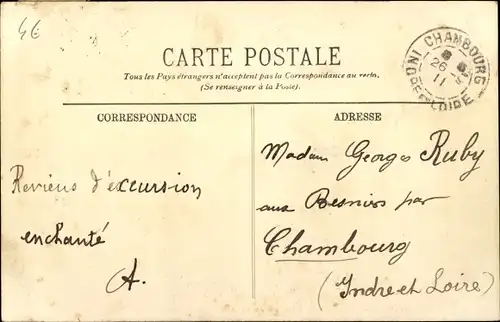 4€
CARTE POSTALE
Tous les Pays étrangers n'acceptent pas la Correspondance au recto.
(Se renseigner à la Poste).
CHAMBOURG
26
11
INDRE-ET-LOIRE
CORRESPONDANCE
Reviens d'excursion
enchanté
A.
ADRESSE
Madame Georges Ruby
aux Besniers par
Chambourg
(Indre et Loire)